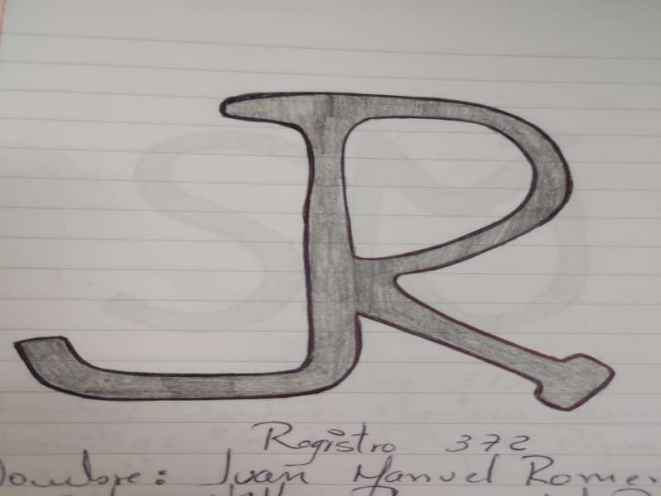 JR
Registro 372
Nombre: Juan Manuel Rome